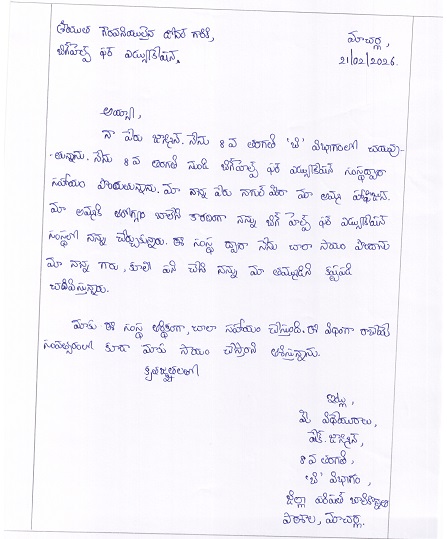 శ్రీయుత గౌరవనీయులైన డోనర్ గారికి,
మాచర్ల,
బిగ్‌హెల్ప్ ఫర్ ఎడ్యుకేషన్.
21/02/2026.
అయ్యా,
నా పేరు జాస్మిన్. నేను 8వ తరగతి 'బి' విభాగంలో చదువు-
తున్నాను. నేను 8వ తరగతి నుండి బిగ్‌హెల్ప్ ఫర్ ఎడ్యుకేషన్ సంస్థద్వారా
సహాయం పొందుతున్నాను. మా నాన్న పేరు నాగుల్ మీరా మా అమ్మ
మా అమ్మకి ఆరోగ్యం బాలేని కారణంగా నన్ను బిగ్ హెల్ప్ ఫర్ ఎడ్యుకేషన్
సంస్థలో నన్ను చేర్చుకున్నారు. ఈ సంస్థ ద్వారా నేను చాలా సాయం పొందాను
మా నాన్న గారు, కూలి పని చేసి నన్ను మా అమ్మని కష్టపడి
చదివిస్తున్నారు.
మాకు ఈ సంస్థ ఆర్థికంగా, చాలా సహాయం చేస్తుంది. ఈ విధంగా రాబోయే
సంవత్సరంలో కూడా మాకు సాయం చేస్తారని ఆశిస్తున్నాను.
కృతజ్ఞతలతో
ఇట్లు,
మీ విధేయురాలు,
షేక్. జాస్మిన్,
8వ తరగతి,
'బి' విభాగం,
జిల్లా పరిషత్ బాలికోన్నత
పాఠశాల, మాచర్ల.